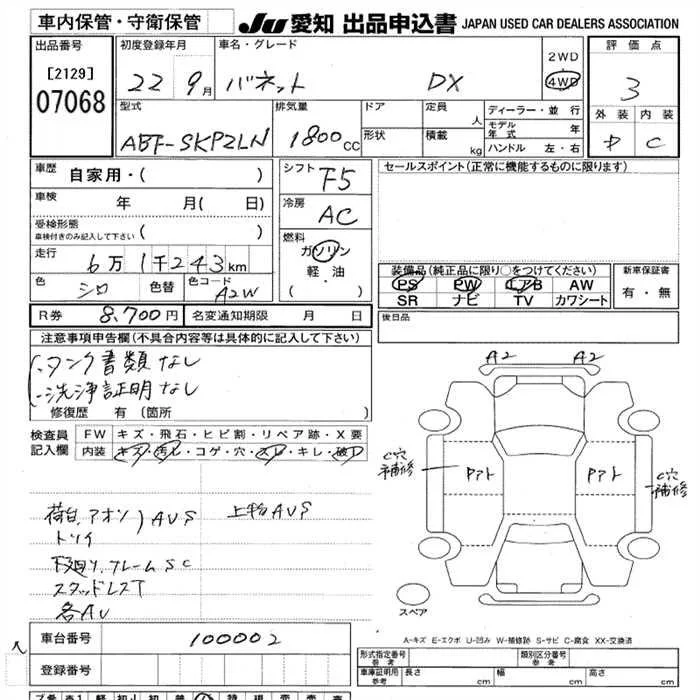 車内保管・守衛保管 JU 愛知 出品申込書 JAPAN USED CAR DEALERS ASSOCIATION
出品番号 初度登録年月 車名・グレード 2WD 評価点
[2129] 22 9月 バネット DX 4WD 3
07068
型式 排気量 ドア 定員 人 ディーラー・並行 外装 内装
ABF-SKP2LN 1800cc 形状 積載 kg モデル年式 年 C
ハンドル 左・右
車歴 自家用・( ) シフト F5 セールスポイント(正常に機能するものに限ります)
車検 年 月( 日) 冷房 AC
受検形態
車検付きのみ記入して下さい ( )
燃料 ガソリン
走行 6万1千243km 軽・油 装備品(純正品に限り○をつけてください) 新車保証書
色 シロ 色替 色コード A2W ・( ) PS PW エアB AW 有・無
SR ナビ TV カワシート
R券 8,700円 名変通知期限 月 日 後日品
注意事項申告欄(不具合内容等は具体的に記入して下さい)
・タンク書類なし
・洗浄証明なし
修復歴 有(箇所 )
A2 A2
検査員 FW キズ・飛石・ヒビ割・リペア跡・X要
記入欄 内装 キズ・汚レ・コゲ・穴・スレ・キレ・破レ
C穴補修 Pアト Pアト C穴補修
荷台.アオリ)AVS 上物AVS
トソイ
下廻リ.フレームSC
スタッドレスT
各AU
スペア
A-キズ E-エクボ U-凹み W-補修跡 S-サビ C-腐食 XX-交換済
車台番号 100002
登録番号
形式指定番号 参考 類別区分番号 参考
車庫証明用 参考 長さ cm 幅 cm 高さ cm